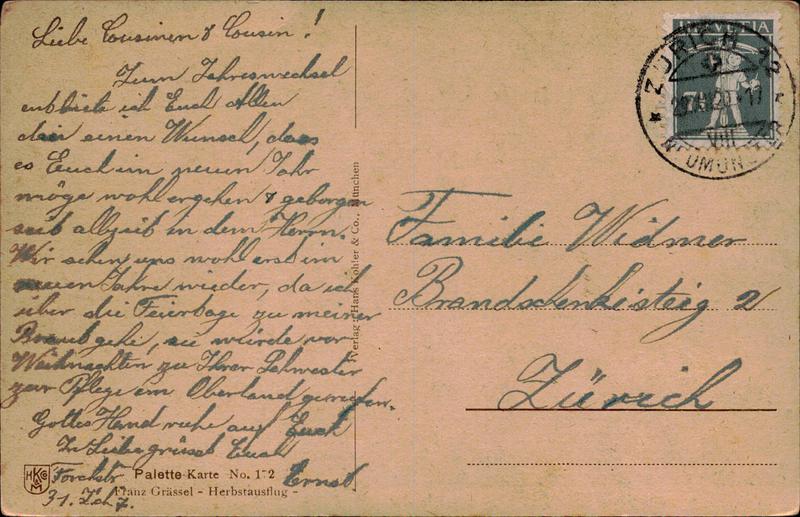 Liebe Cousinen & Cousin!
Zum Jahreswechsel
entbiete ich Euch Allen
den einen Wunsch, dass
es Euch im neuen Jahr
möge wohl ergehen & geborgen
seid allzeit in dem Herrn.
Wir sehen uns wohl erst im
neuen Jahre wieder, da ich
über die Feiertage zu meiner
Braut gehe, sie wurde vor
Weihnachten zu Ihrer Schwester
zur Pflege im Oberland gerufen.
Gottes Hand ruhe auf Euch
In Liebe grüsst Euch
Ernst
Forchstr
31. Zch 7.
HKCo M
Palette-Karte No. 172
Franz Grässel - Herbstausflug -
Verlag: Hans Köhler & Co., München
HELVETIA
7½
ZÜRICH 12
VIII
NEUMÜNSTER
Familie Widmer
Brandschenkisteig 2
Zürich